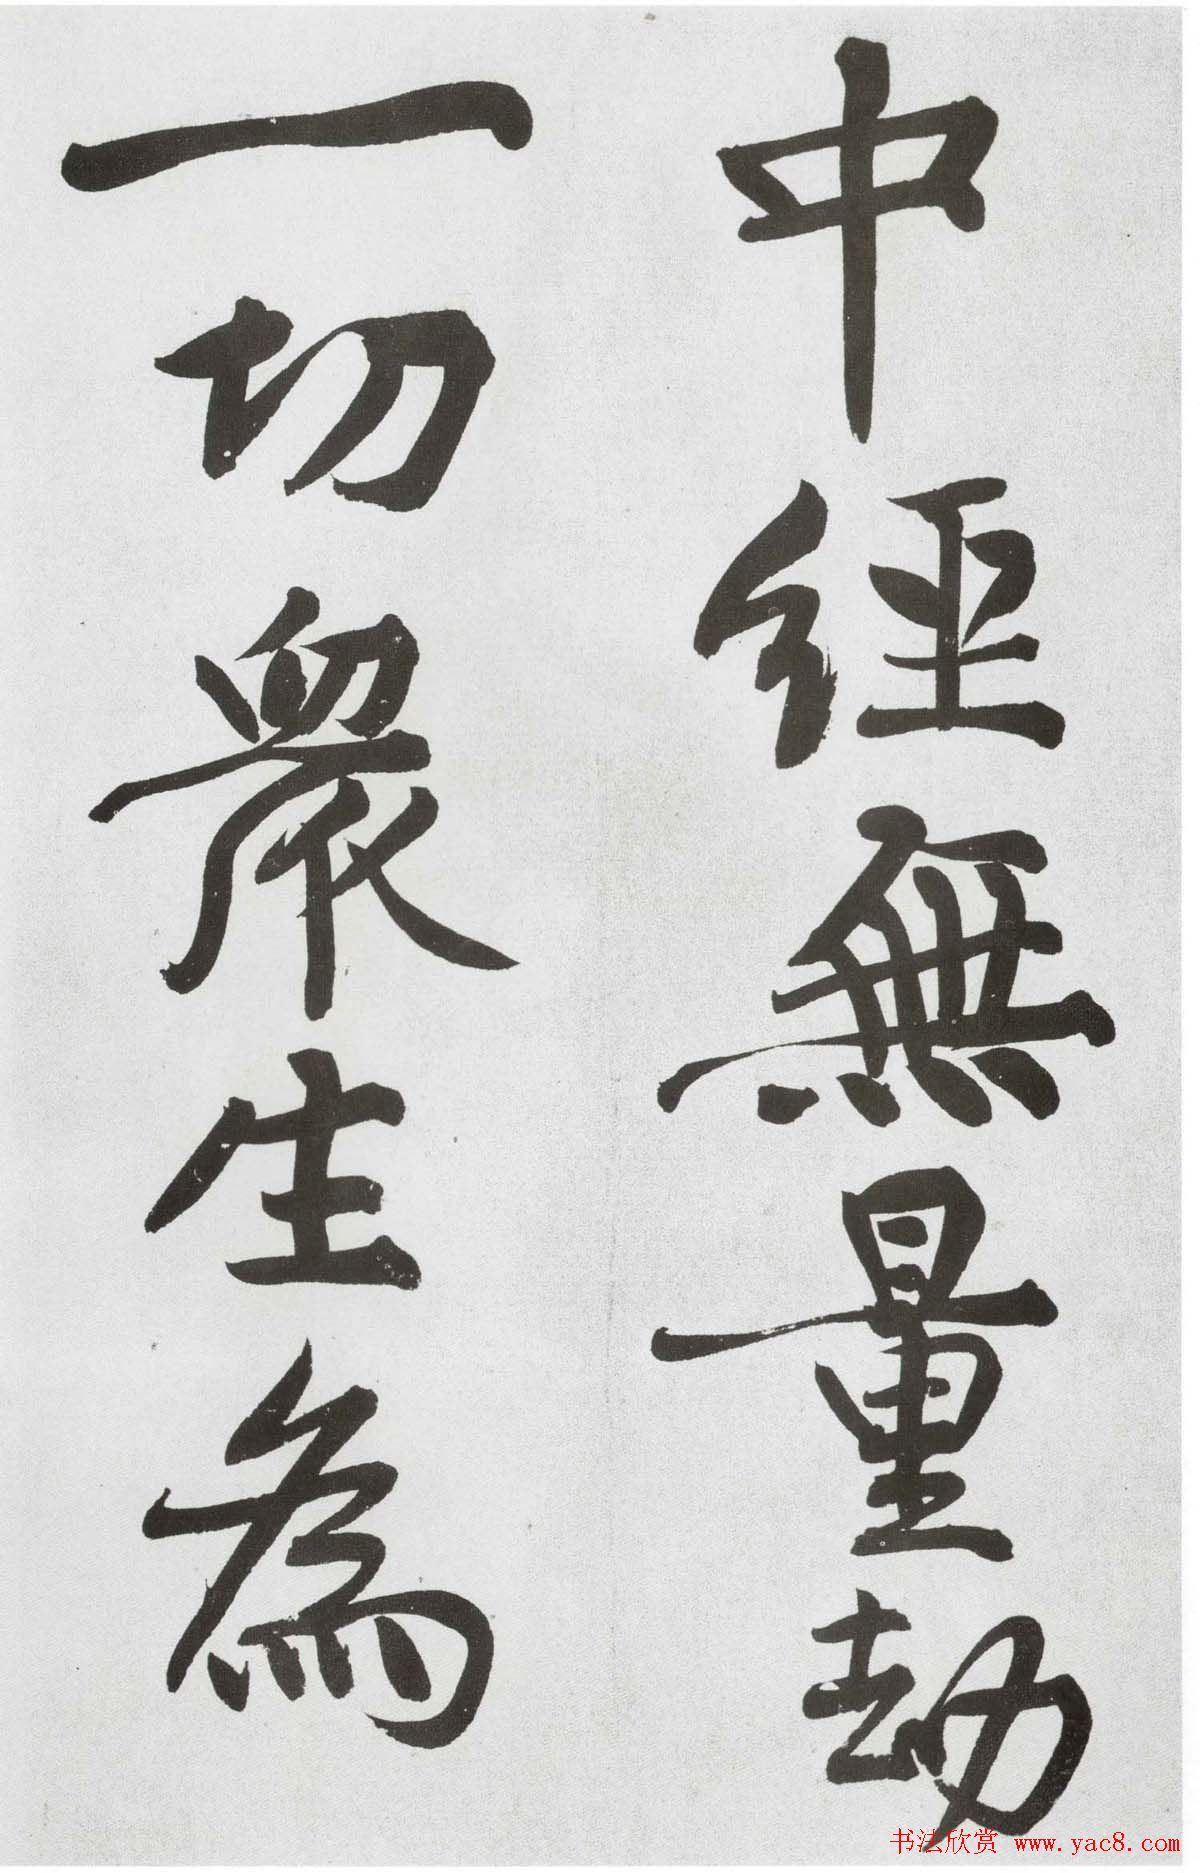 中經無量劫
一切眾生為
书法欣赏 www.yac8.com